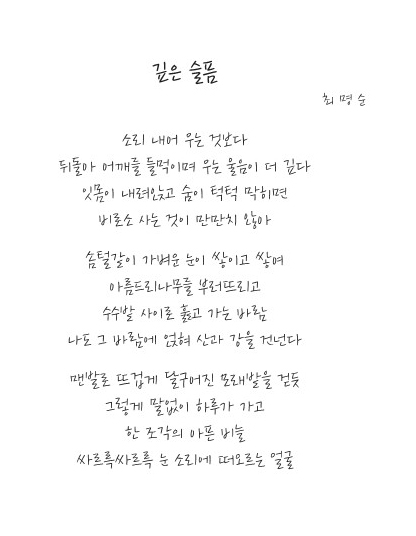 깊은 슬픔
최 명 순
소리 내어 우는 것보다
뒤돌아 어깨를 들먹이며 우는 울음이 더 깊다
잇몸이 내려앉고 숨이 턱턱 막히면
비로소 사는 것이 만만치 않아
솜털같이 가벼운 눈이 쌓이고 쌓여
아름드리나무를 부러뜨리고
수수밭 사이로 훑고 가는 바람
나도 그 바람에 얹혀 산과 강을 건넌다
맨발로 뜨겁게 달구어진 모래밭을 걷듯
그렇게 말없이 하루가 가고
한 조각의 아픈 비늘
싸르륵싸르륵 눈 소리에 떠오르는 얼굴